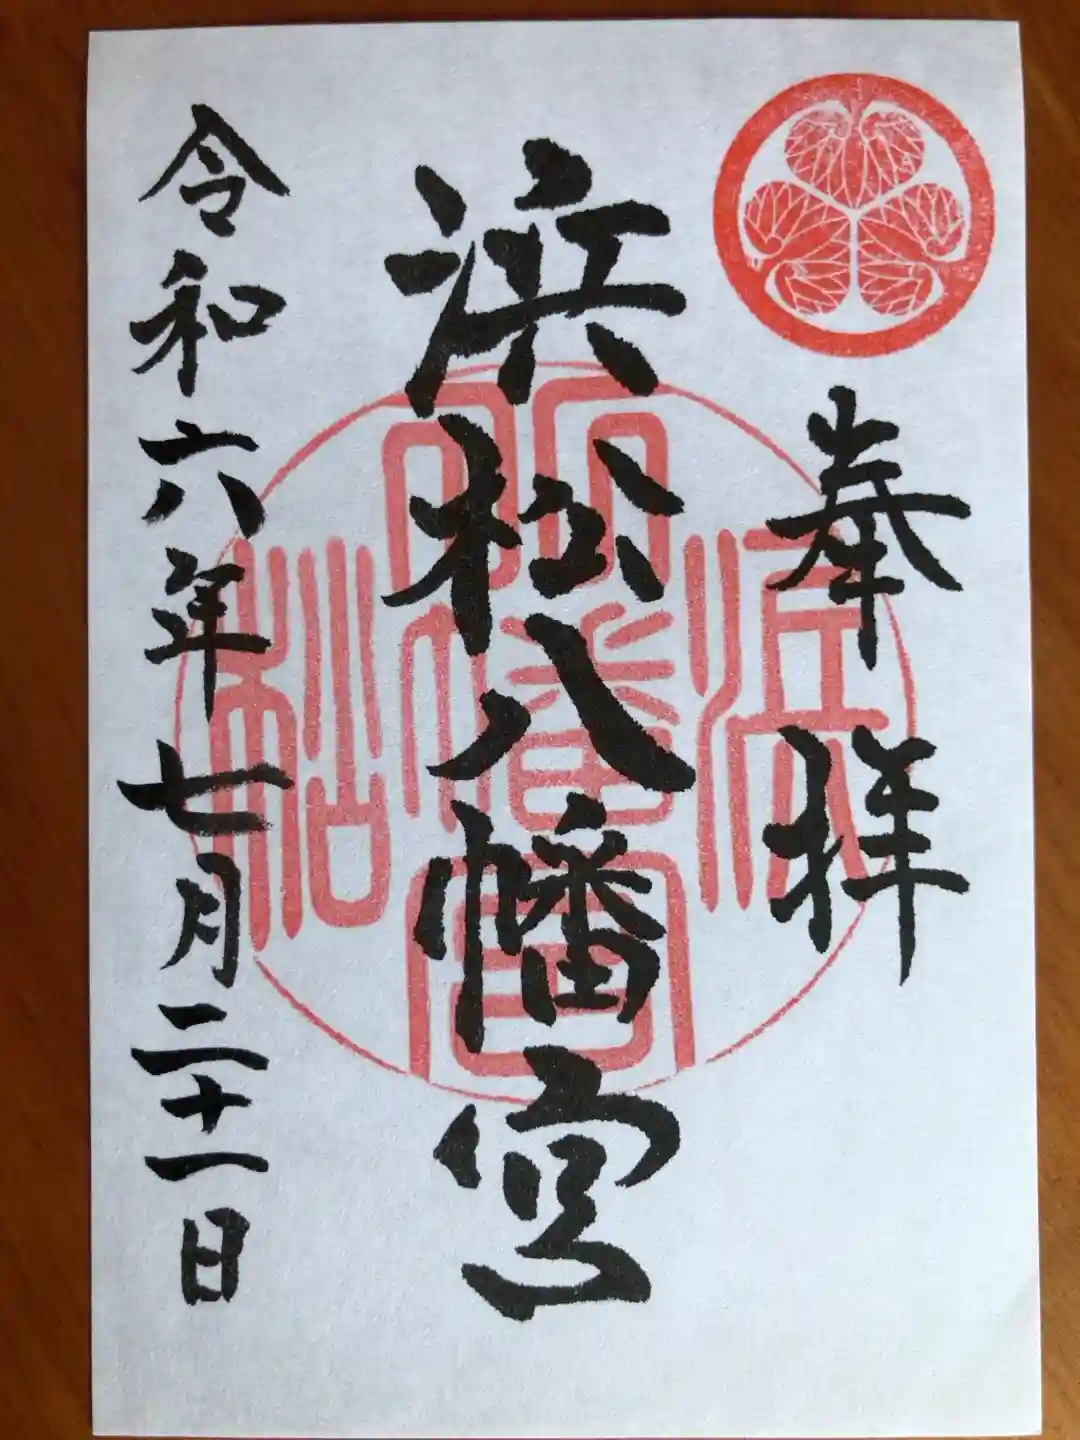 奉拝
浜松八幡宮
令和六年七月二十一日
濱松八幡宮